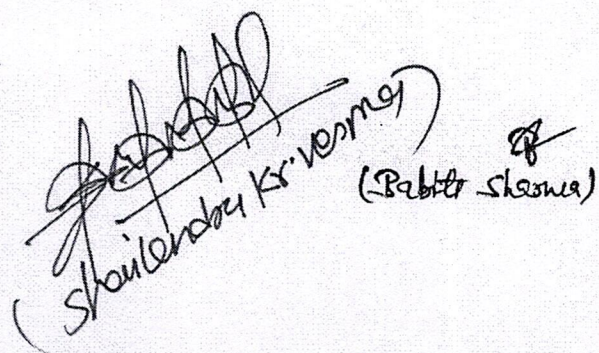 (Shailendra Kr. Verma)
(Babita Sharma)